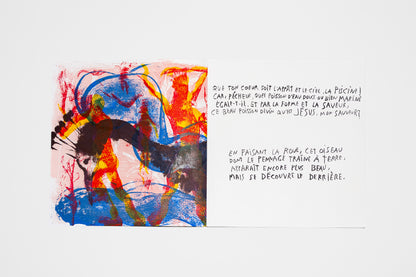 QUE TON COEUR SOIT L'APPÂT ET LE CIEL, LA PISCINE!
CAR, PÊCHEUR, QUEL POISSON D'EAU DOUCE OU BIEN MARINE
EGALE-T-IL, ET PAR LA FORME ET LA SAVEUR,
CE BEAU POISSON DIVIN QU'EST JÉSUS, MON SAUVEUR?
EN FAISANT LA ROUE, CET OISEAU
DONT LE PENNAGE TRAÎNE À TERRE,
APPARAÎT ENCORE PLUS BEAU,
MAIS SE DÉCOUVRE LE DERRIÈRE.